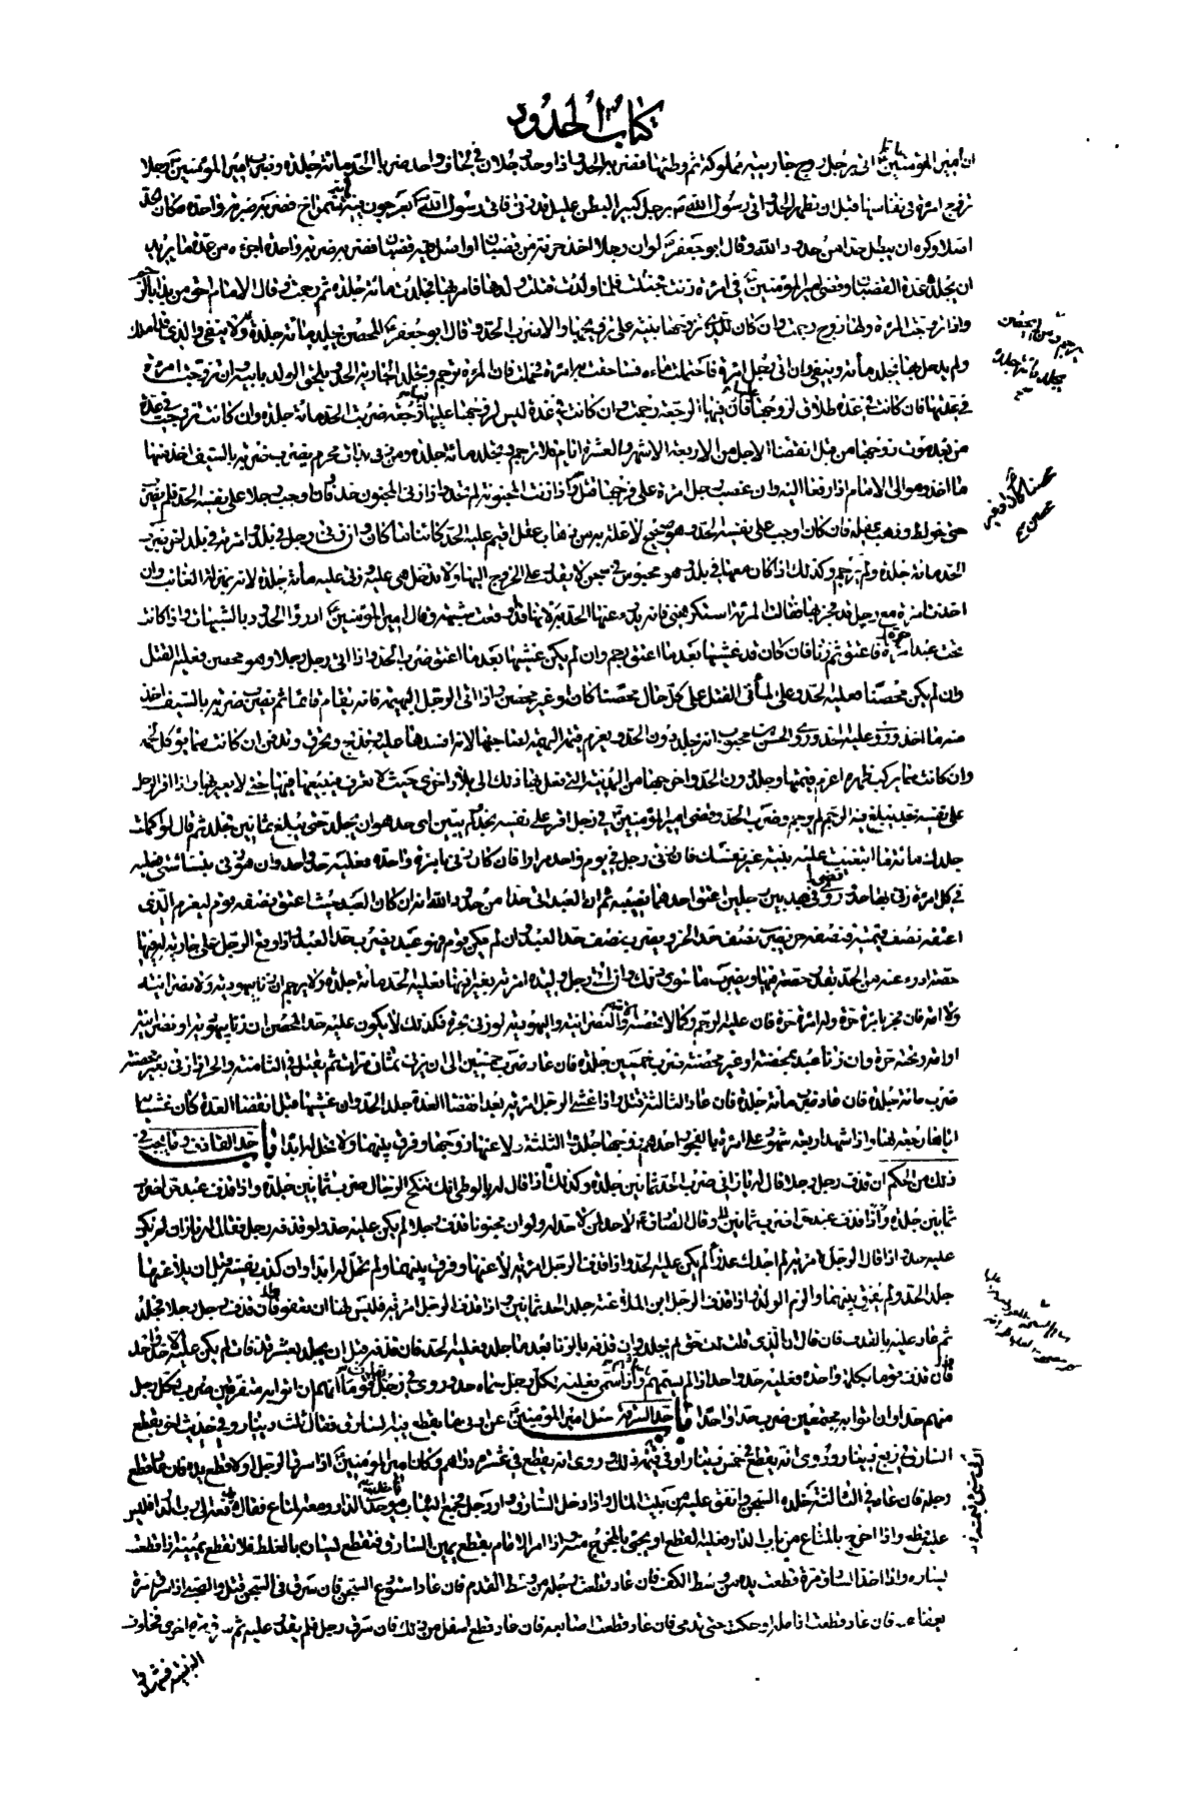 كتاب الحدود
ان أمير المؤمنين اتى برجل زوج جاريته مملوكه ثم وطئها فضربه الحد واذا وجد رجلان في لحاف واحد ضربا الحد مائة جلدة وضرب أمير المؤمنين رجلا
تزوج امرأة في نفاسها قبل ان تطهر الحد واتى رسول الله برجل كبير البطن عليل قد زنى فاتى رسول الله بعرجون فيه شمراخ فضربه ضربة واحدة مكان الحد
وكره ان يبطل حدا من حدود الله وقال ابو جعفر لو ان رجلا اخذ حزمة من قضبان او اصلا فيه قضبان فضربه ضربة واحدة اجزءه من عدة ما يريد
ان يجلده عدة القضبان وقضى امير المؤمنين في امرأة زنت فحبلت فلما ولدت قتلت ولدها فامر بها فجلدت مائة جلدة ثم رجمت وقال الامام احق من بدأ بالرجم
واذا زوجت المرأة ولها زوج رجمت وان كان للذي تزوجها بينة على تزويجها والا ضرب الحد وقال ابو جعفر المحصن يجلد مائة جلدة ولا ينفى والذي قد املك
ولم يدخل بها يجلد مائة وينفى وان اتى رجل امرأة فاحتملت ماءه فساحقت به امرأة فحملت فان المرأة ترجم وتجلد الجارية الحد ويلحق الولد بابيه وان تزوجت امرأة
في عدتها فان كانت في عدة طلاق لزوجها عليها فيها الرجعة رجمت وان كانت في عدة ليس لزوجها عليها رجعة ضربت الحد مائة جلدة وان كانت تزوجت في عدة
من بعد موت زوجها من قبل انقضاء الاجل من الاربعة الاشهر والعشرة ايام فلا ترجم وتجلد مائة جلدة ومن زنى بذات محرم يضرب ضربة بالسيف اخذت منها
ما اخذ وهو الى الامام اذا رفعا اليه وان غصب رجل امرأة على فرجها قتل واذا زنت المجنونة لم تحد واذا زنى المجنون حد وان اوجب رجل على نفسه الحد فلم يضرب
حتى خولط وذهب عقله فان كان اوجب على نفسه الحد وهو صحيح لا علة به من ذهاب عقل اقيم عليه الحد كائنا ما كان وان زنى رجل في بلد وامرأته في بلد اخر ضرب
الحد مائة جلدة ولم يرجم وكذلك اذا كان معها في بلد وهو محبوس في سجن لا يقدر على الخروج اليها ولا تدخل هي عليه وزنى عليه مائة جلدة لانه بمنزلة الغائب وان
اخذت امرأة مع رجل قد فجر بها فقالت المرأة استكرهني فانه يدرء عنها الحد لانها قد وقعت شبهة وقال امير المؤمنين ادرؤا الحدود بالشبهات واذا كانت
تحت عبد امرأة حرة فاعتق ثم زنا فان كان قد غشيها بعد ما اعتق رجم وان لم يكن غشيها بعد ما اعتق ضرب الحد واذا اتى رجل رجلا وهو محصن فعليه القتل
وان لم يكن محصنا فعليه الحد وعلى المأتى القتل على كل حال محصنا كان او غير محصن واذا اتى الرجل البهيمة فانه يقام قائما ثم يضرب ضربة بالسيف اخذ
منه ما اخذ وروى عليه الحد وروى الحسن بن محبوب انه يجلد دون الحد ويغرم قيمة البهيمة لصاحبها لانه افسدها عليه وتذبح وتحرق وتدفن ان كانت مما يؤكل لحمه
وان كانت مما يركب ظهره اغرم قيمتها وجلد دون الحد واخرجها من المدينة التي فعل بها ذلك الى بلاد اخرى حيث لا تعرف فيبيعها فيها حتى لا يعير بها واذا اقر الرجل
على نفسه بحد يبلغ فيه الرجم لم يرجم وضرب الحد وقضى امير المؤمنين في رجل اقر على نفسه بحد ولم يبين اى حد هو ان يجلد حتى يبلغ ثمانين فجلد ثم قال لو اكملت
جلدك مائة ما ابتغيت عليه بينة غير نفسك فان زنى رجل في يوم واحد مرارا فان كان زنى بامرأة واحدة فعليه حد واحد وان هو زنى بنساء شتى فعليه
في كل امرأة زنى بها حد وروى في عبد بين رجلين اعتق احدهما نصيبه ثم ان العبد اتى حدا من حدود الله انه ان كان العبد حيث اعتق نصفه قوم ليغرم الذى
اعتقه نصف قيمته فنصفه حر يضرب نصف حد الحر ويضرب نصف حد العبد وان لم يكن قوم فهو عبد يضرب حد العبد واذا وقع الرجل على جارية له فيها
حصة درء عنه من الحد بقدر حصته فيها ويضرب ما سوى ذلك وان اتى رجل وليدة امرأته بغير اذنها فعليه الحد مائة جلدة ولا يرجم ان زنا بيهودية ولا نصرانية
ولا امة فان فجر بامرأة حرة وله امرأة حرة فان عليه الرجم وكما لا تحصنه الامة والنصرانية واليهودية لو زنى بحرة فكذلك لا يكون عليه حد المحصن ان زنا بيهودية او نصرانية
او امة وتحته حرة وان زنا عبد بمحصنة او غير محصنة ضرب خمسين جلدة فان عاد ضرب خمسين الى ان يزنى ثمان مرات ثم يقتل في الثامنة والحر اذا زنى بغير محصنة
ضرب مائة جلدة فان عاد ضرب مائة جلدة فان عاد الثالثة قتل واذا غشى الرجل امرأته بعد انقضاء العدة جلد الحد وان غشيها قبل انقضاء العدة كان غشيانه
اياها رجعة لها واذا شهد اربعة شهود على امرأة بالفجور احدهم زوجها جلدوا الثلثة ولاعنها زوجها وفرق بينهما ولا تحل له ابدا باب حد القاذف وما يجب في
ذلك من الحكم ان قذف رجل رجلا فقال له يا زانى ضرب الحد ثمانين جلدة وكذلك اذا قال له يا لوطى انك تنكح الرجال ضرب ثمانين جلدة واذا قذف عبد حرا ضرب
ثمانين جلدة واذا قذف عبد حرا ضرب ثمانين وقال الصادق لا حد لمن لا حد له ولو ان مجنونا قذف رجلا لم يكن عليه حد ولو قذفه رجل فقال له يا زان لم يكن
عليه حد واذا قال الرجل لامرأته لم اجدك عذراء لم يكن عليه الحد واذا قذف الرجل امرأته لاعنها وفرق بينهما ولم تحل له ابدا وان كذب نفسه قبل ان يلاعنها
جلد الحد ولم يفرق بينهما والزم الولد واذا قذف الرجل ابن الملاعنة جلد الحد ثمانين واذا قذف الرجل امرأته فليس لها ان تعفو فان قذف رجل رجلا فجلد
ثم عاد عليه بالقذف فان قال ان الذى قلت لك حق لم يجلد وان قذفه بالزنا بعد ما جلد فعليه الحد فان قذفه قبل ان يجلد بعشر قذفات لم يكن عليه الا حد واحد
فان قذف قوما بكلمة واحدة فعليه حد واحد اذا لم يسمهم واذا سمى فعليه لكل رجل سماه حد وروى في رجل قذف قوما انهم ان اتوا به متفرقين ضرب لكل رجل
منهم حدا وان اتوا به مجتمعين ضرب حدا واحدا باب حد السرقة سئل امير المؤمنين عن ادنى ما يقطع فيه السارق فقال ثلث دينار وفي حديث اخر يقطع
السارق في ربع دينار وروى انه يقطع في خمس دينار او في قيمة ذلك وروى انه يقطع في عشرة دراهم وكان امير المؤمنين اذا سرق الرجل اولا قطع يده فان عاد قطع
رجله فان عاد في الثالثة خلده السجن وانفق عليه من بيت المال واذا دخل السارق دار رجل فجمع الثياب فيوخذ في الدار ومعه المتاع فقال دفعه الى رب الدار فليس
عليه قطع واذا اخرج بالمتاع من باب الدار فعليه القطع او يجئ بالمخرج منه واذا امر الامام بقطع يمين السارق فتقطع يساره بالغلط فلا تقطع يمينه اذا قطعت
يساره واذا اخذ السارق مرة قطعت يده من وسط الكف فان عاد قطعت رجله من وسط القدم فان عاد استودع السجن فان سرق في السجن قتل والصبى اذا سرق مرة
يعفا عنه فان عاد قطعت انامله او حكت حتى تدمى فان عاد قطعت اصابعه فان عاد قطع اسفل من ذلك فان سرق رجل فلم يقدر عليه ثم سرق مرة اخرى فجاءت
البينة فشهدوا